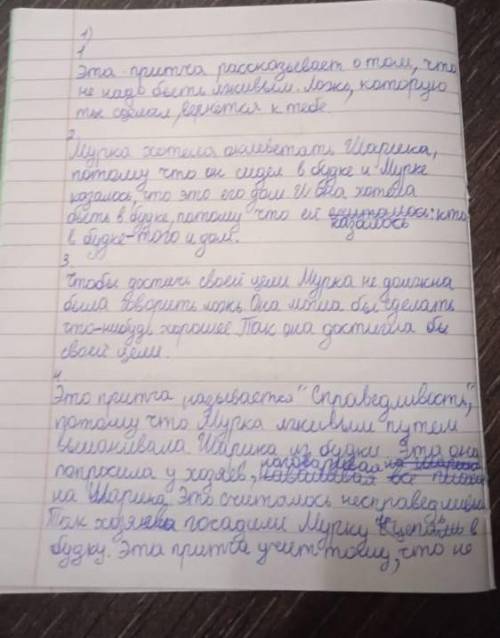 1)
1
Эта притча рассказывает о том, что
не надо быть лживым. Ложь, которую
ты сделал, вернётся к тебе
2.
Мурка хотела оклеветать Шарика,
потому что он сидел в будке и Мурке
казалось, что это его дом. И она хотела
быть в будке, потому что ей считалось: кто
казалось
в будке-того и дом.
3.
Чтобы достичь своей цели Мурка не должна
была говорить ложь. Она могла бы сделать
что-нибудь хорошее. Так она достигла бы
своей цели.
4
Это притча называется "Справедливость",
потому что Мурка лживым путем
выманивала Шарика из будки. Это она
попросила у хозяев, наговаривая на Шарика
все
на Шарика. Это считалось несправедливым
Так хозяева посадили Мурку в
будку. Эта притча учит тому, что не